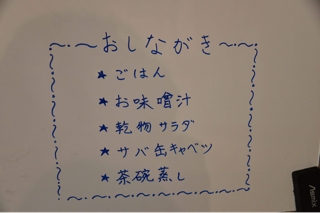 おしながき
★ごはん
★お味噌汁
★乾物サラダ
★サバ缶キャベツ
★茶碗蒸し